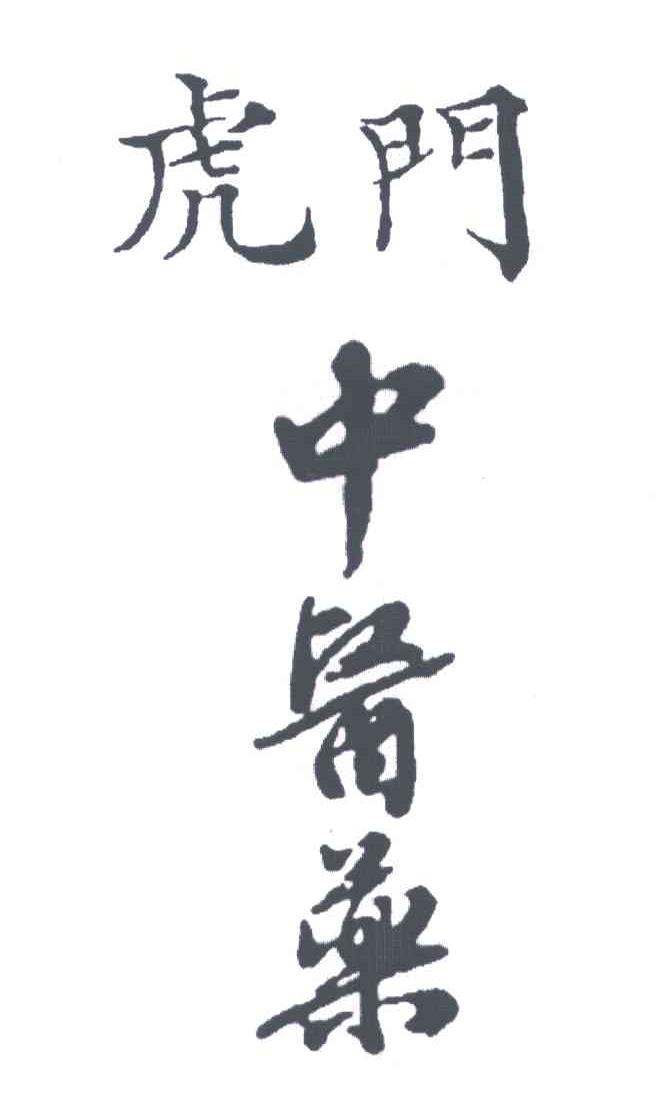 虎門
中醫藥